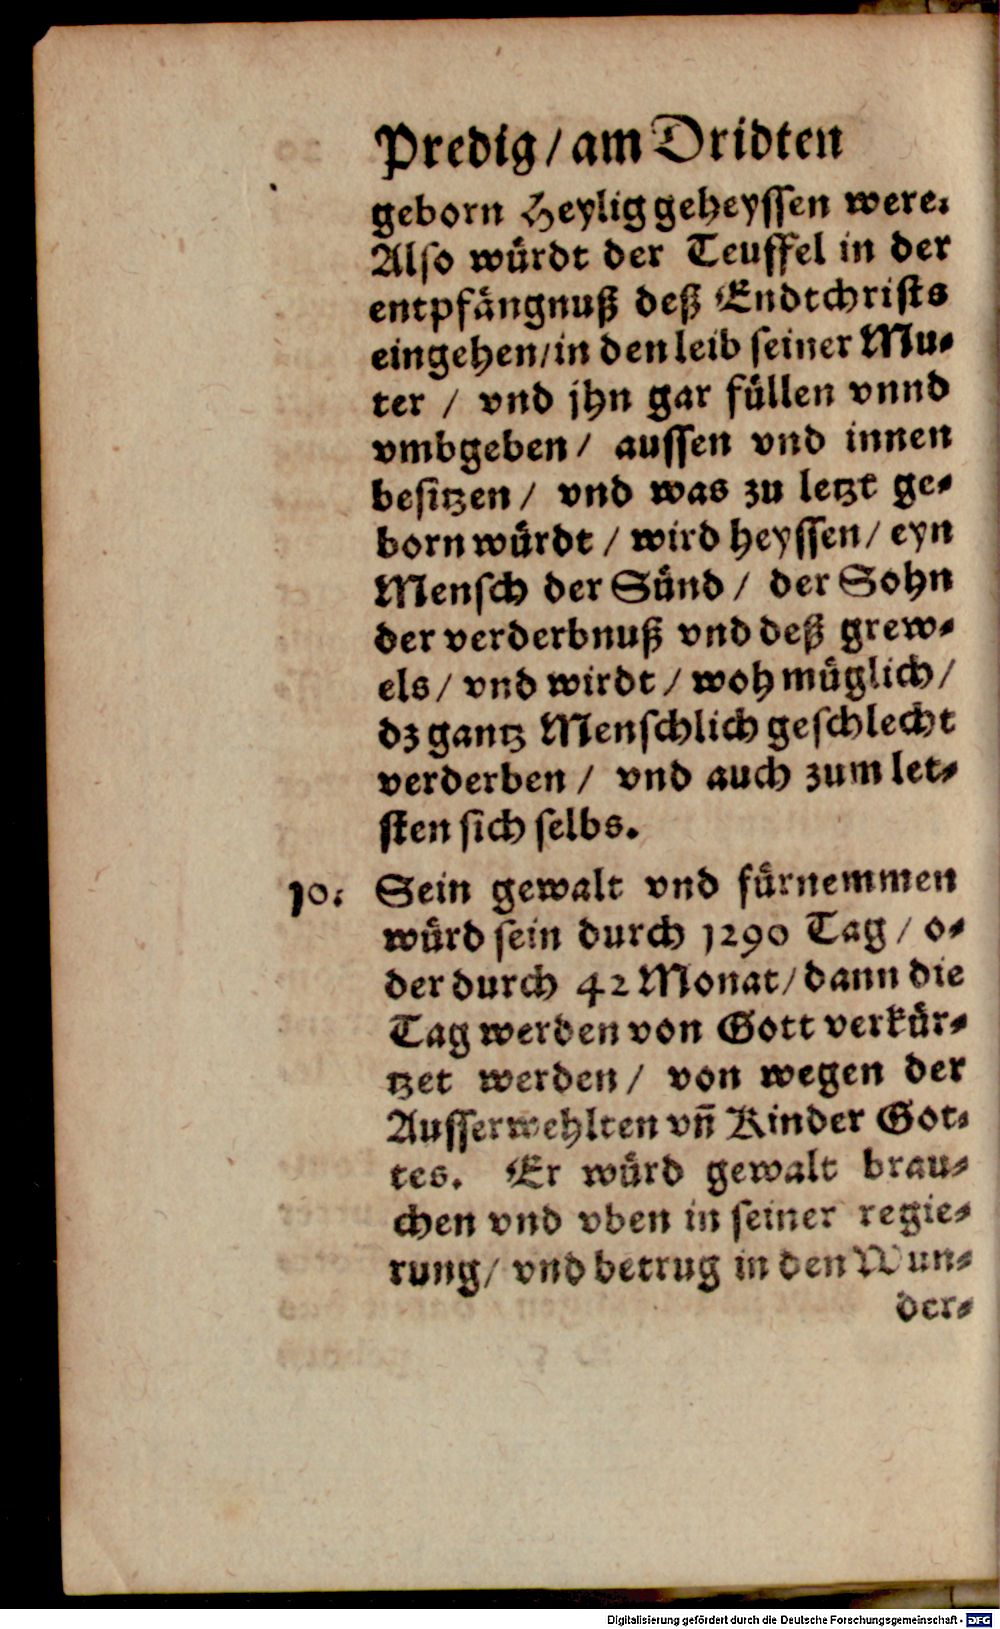 Predig / am Dridten
geborn Heylig geheyssen were.
Also würdt der Teuffel in der
entpfängnuß deß Endtchrists
eingehen / in den leib seiner Mu-
ter / vnd jhn gar füllen vnnd
vmbgeben / aussen vnd innen
besitzen / vnd was zu letzt ge-
born würdt / wird heyssen / eyn
Mensch der Sünd / der Sohn
der verderbnuß vnd deß grew-
els / vnd wirdt / woh müglich /
dz gantz Menschlich geschlecht
verderben / vnd auch zum let-
sten sich selbs.
10. Sein gewalt vnd fürnemmen
würd sein durch 1290 Tag / o-
der durch 42 Monat / dann die
Tag werden von Gott verkür-
tzet werden / von wegen der
Ausserwehlten vñ Kinder Got-
tes. Er würd gewalt brau-
chen vnd vben in seiner regie-
rung / vnd betrug in den Wun-
der-
Digitalisierung gefördert durch die Deutsche Forschungsgemeinschaft - DFG